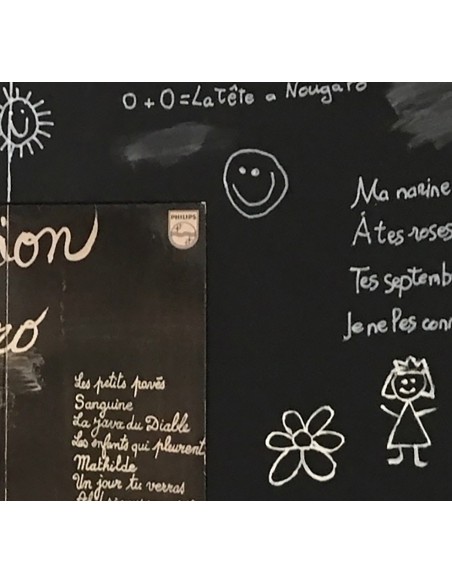 0 + 0 = La Tête a Nougaro
Ma narine
À tes roses
Tes septemb
Je ne les conn
PHILIPS
ion
ro
Les petits pavés
Sanguine
La java du Diable
Les enfants qui pleurent
Mathilde
Un jour tu verras